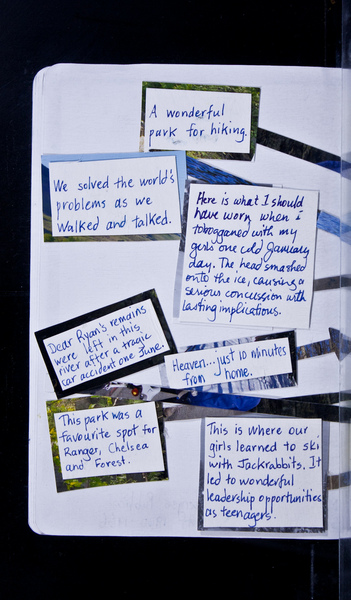 A wonderful
park for hiking.
We solved the world's
problems as we
walked and talked.
Here is what I should
have worn when I
tobogganed with my
girls one cold January
day. The head smashed
onto the ice, causing a
serious concussion with
lasting implications.
Dear Ryan's remains
were left in this
river after a tragic
car accident one June.
Heaven...just 10 minutes
from home.
This park was a
favourite spot for
Ranger, Chelsea
and Forest.
This is where our
girls learned to ski
with Jackrabbits. It
led to wonderful
leadership opportunities
as teenagers.